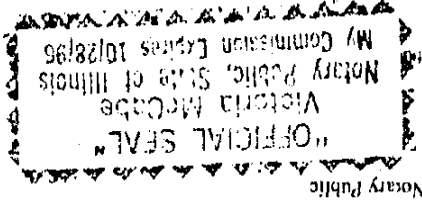 Notary Public
"OFFICIAL SEAL"
Victoria McCabe
Notary Public, State of Illinois
My Commission Expires 10/28/96